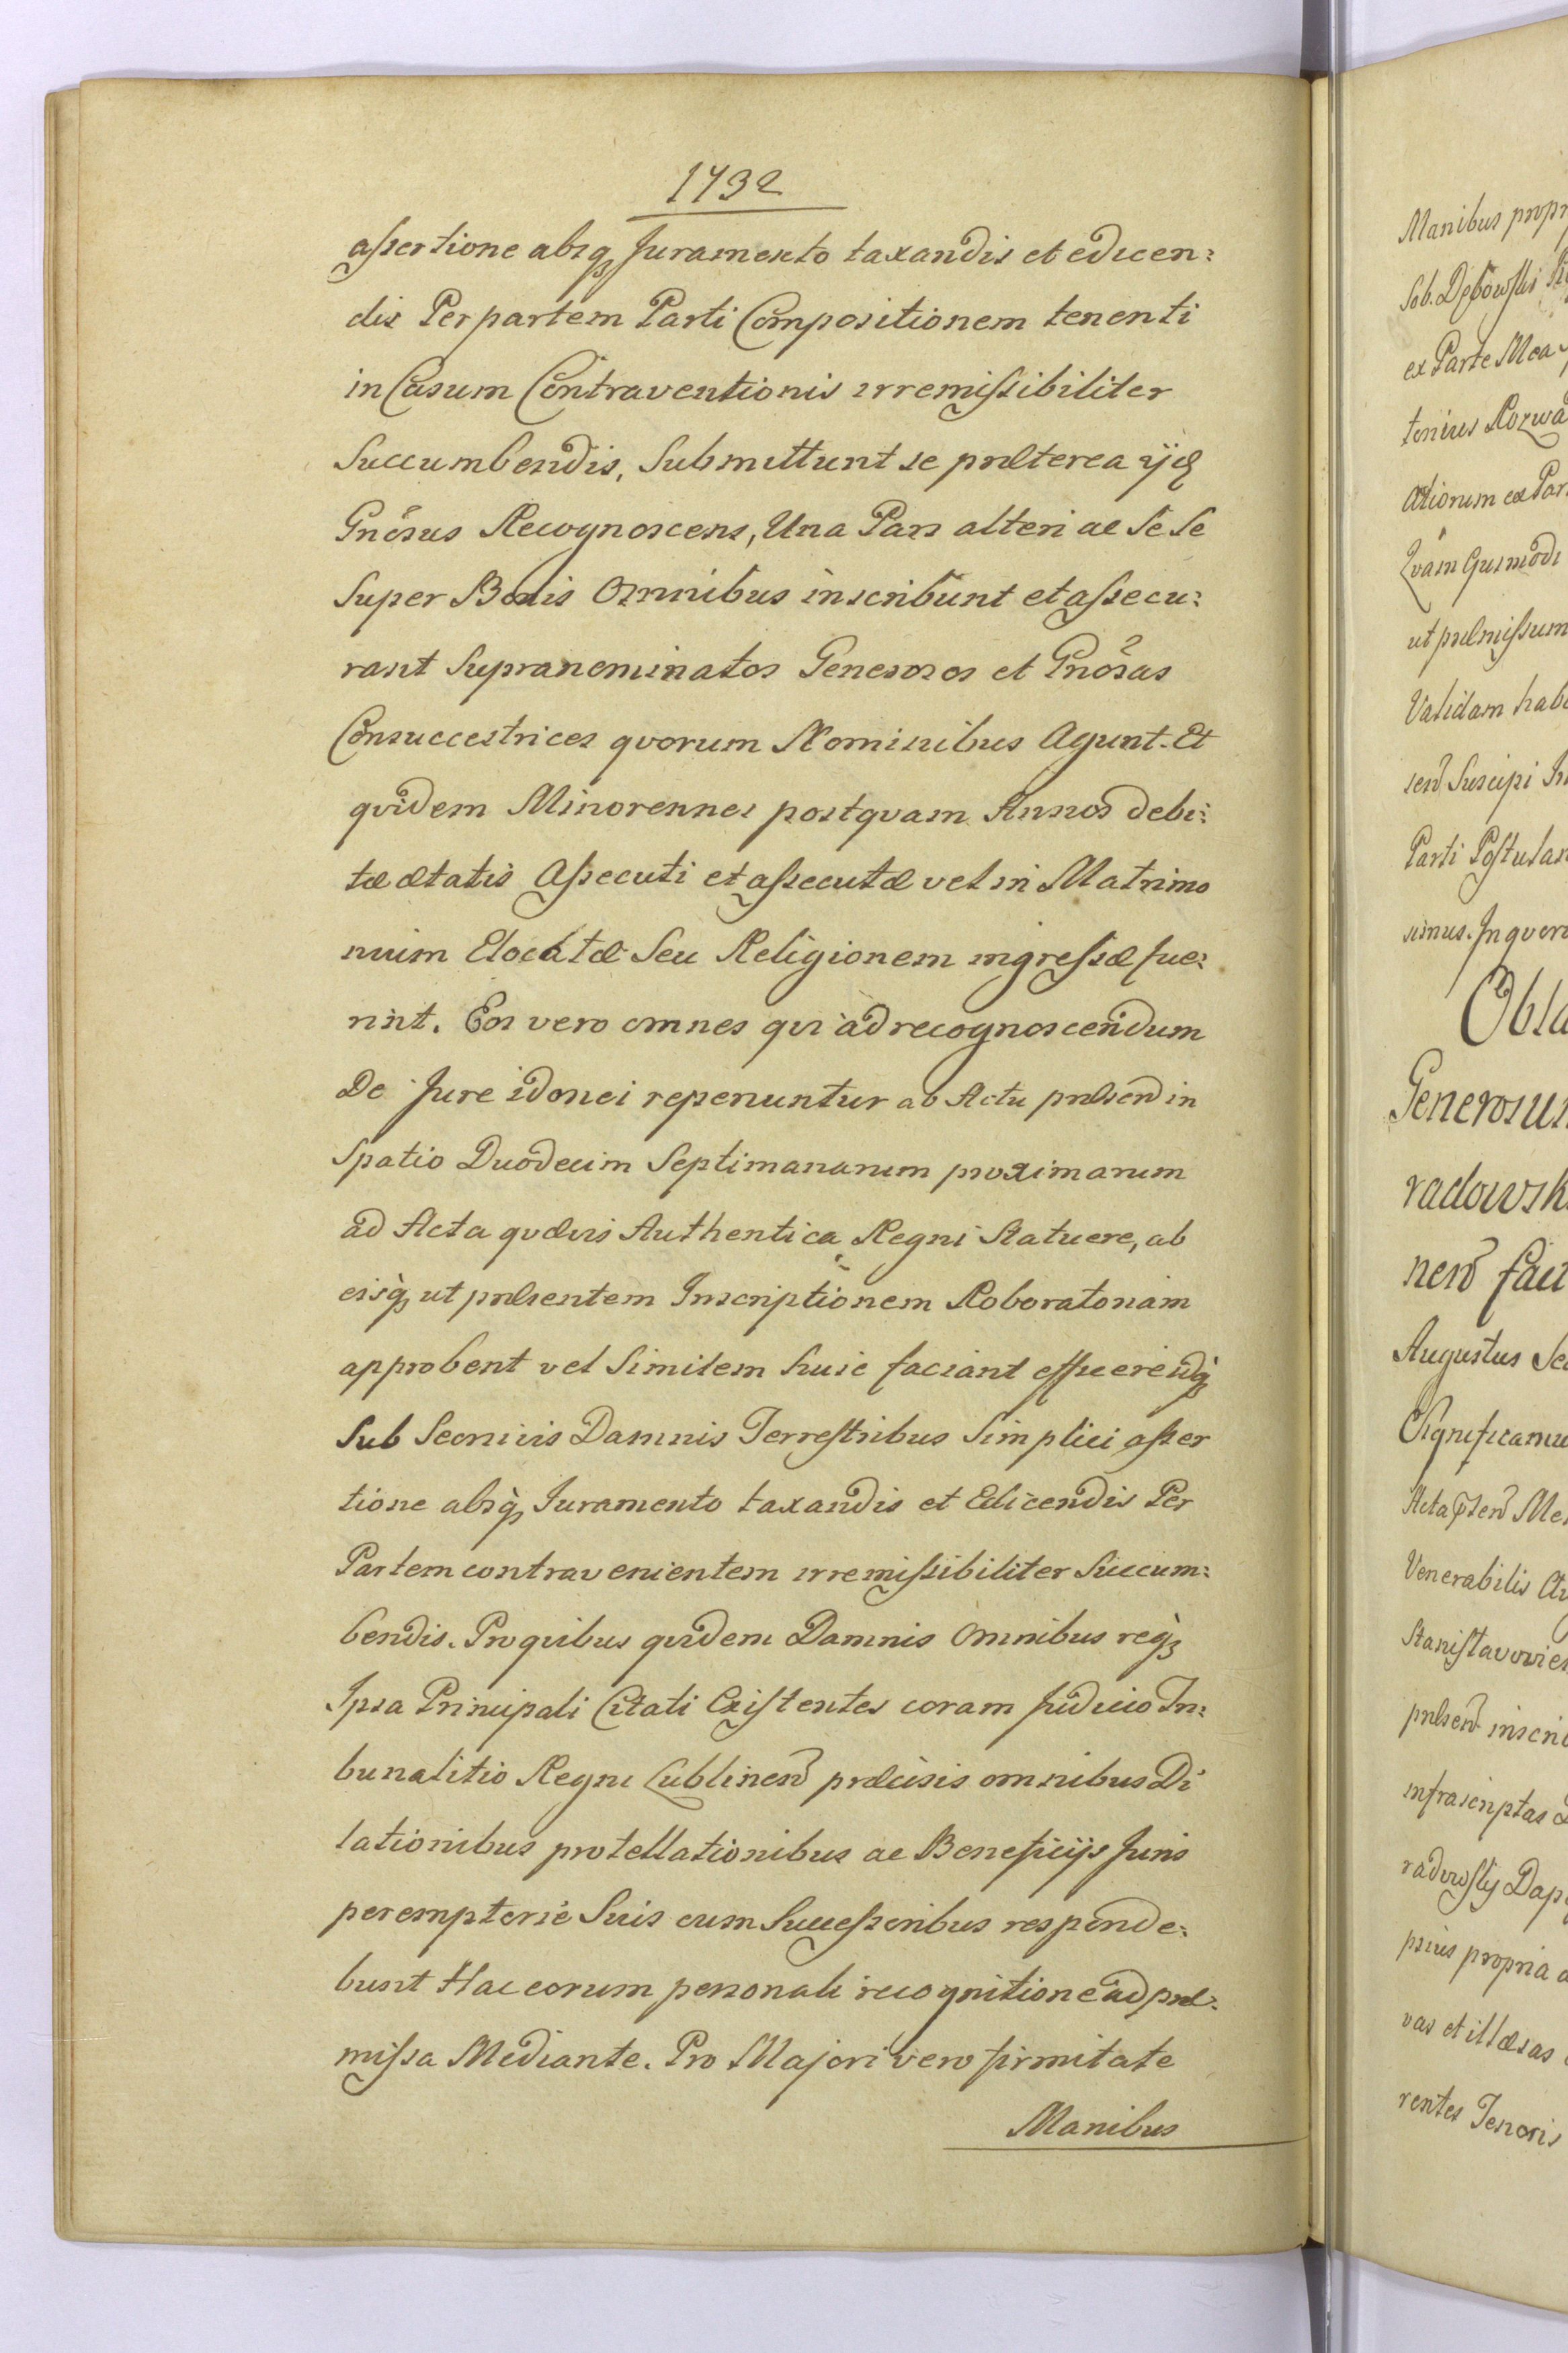 1732
assertione absq₃ Juramento taxandis et edicen:
dis Per partem Parti Compositionem tenenti
in Casum Contraventionis irremissibiliter
Succumbendis, Submittunt se præterea ijd
Gnõsus Recognoscens, Una Pars alteri ac Se Se
Super Bonis Omnibus inscribunt et assecu:
rant Supranominatos Generosos et Gnõsas
Consuccestrices qvorum Nominibus Agunt. Et
qvidem Minorennes postqvam Annos debi:
tæ ætatis Assecuti et assecutæ vel in Matrimo
nium Elocatæ Seu Religionem ingressæ fue:
rint. Eos vero omnes qvi ad recognoscendum
De Jure idonei reperiuntur ab Actu præsen in
Spatio Duodecim Septimanarum proximarum
ad Acta qvævis Authentica Regni Statuere, ab
eisq₃ ut præsentem Inscriptionem Roboratoriam
approbent vel Similem huic faciant efficereq₃
Sub Seorsivis Damnis Terrestribus Simplici asser
tione absq₃ Juramento taxandis et Edicendis Per
Partem contravenientem irremissibiliter Succum:
bendis. Pro qvibus qvidem Damnis Omnibus req₃
Ipsa Principali Citati Existentes coram Judicio Tri:
bunalitio Regni Lublinen præcisis omnibus Di
lationibus protellationibus ac Beneficijs Juris
peremptorie Suis cum Successoribus responde:
bunt Hac eorum personali recognitione ad præ:
missa Mediante. Pro Majori vero firmitate
Manibus
Manibus propr
Sob. Dębowski
ex Parte Mea
tonius Rozwad
Actiorum ex Par
Qvam Ejusmodi
ut præmissum
Validam habe
sen Suscipi
Parti Postulan
simus. In qvoru
Obla
Generosus
radowsk
nen fact
Augustus Se
Significamu
Acta præsen Me
Venerabilis
Stanislavovien
præsen inscri
infrascriptas
radowskij Dap
prius propria
vas et illæsas
rentes Tenoris